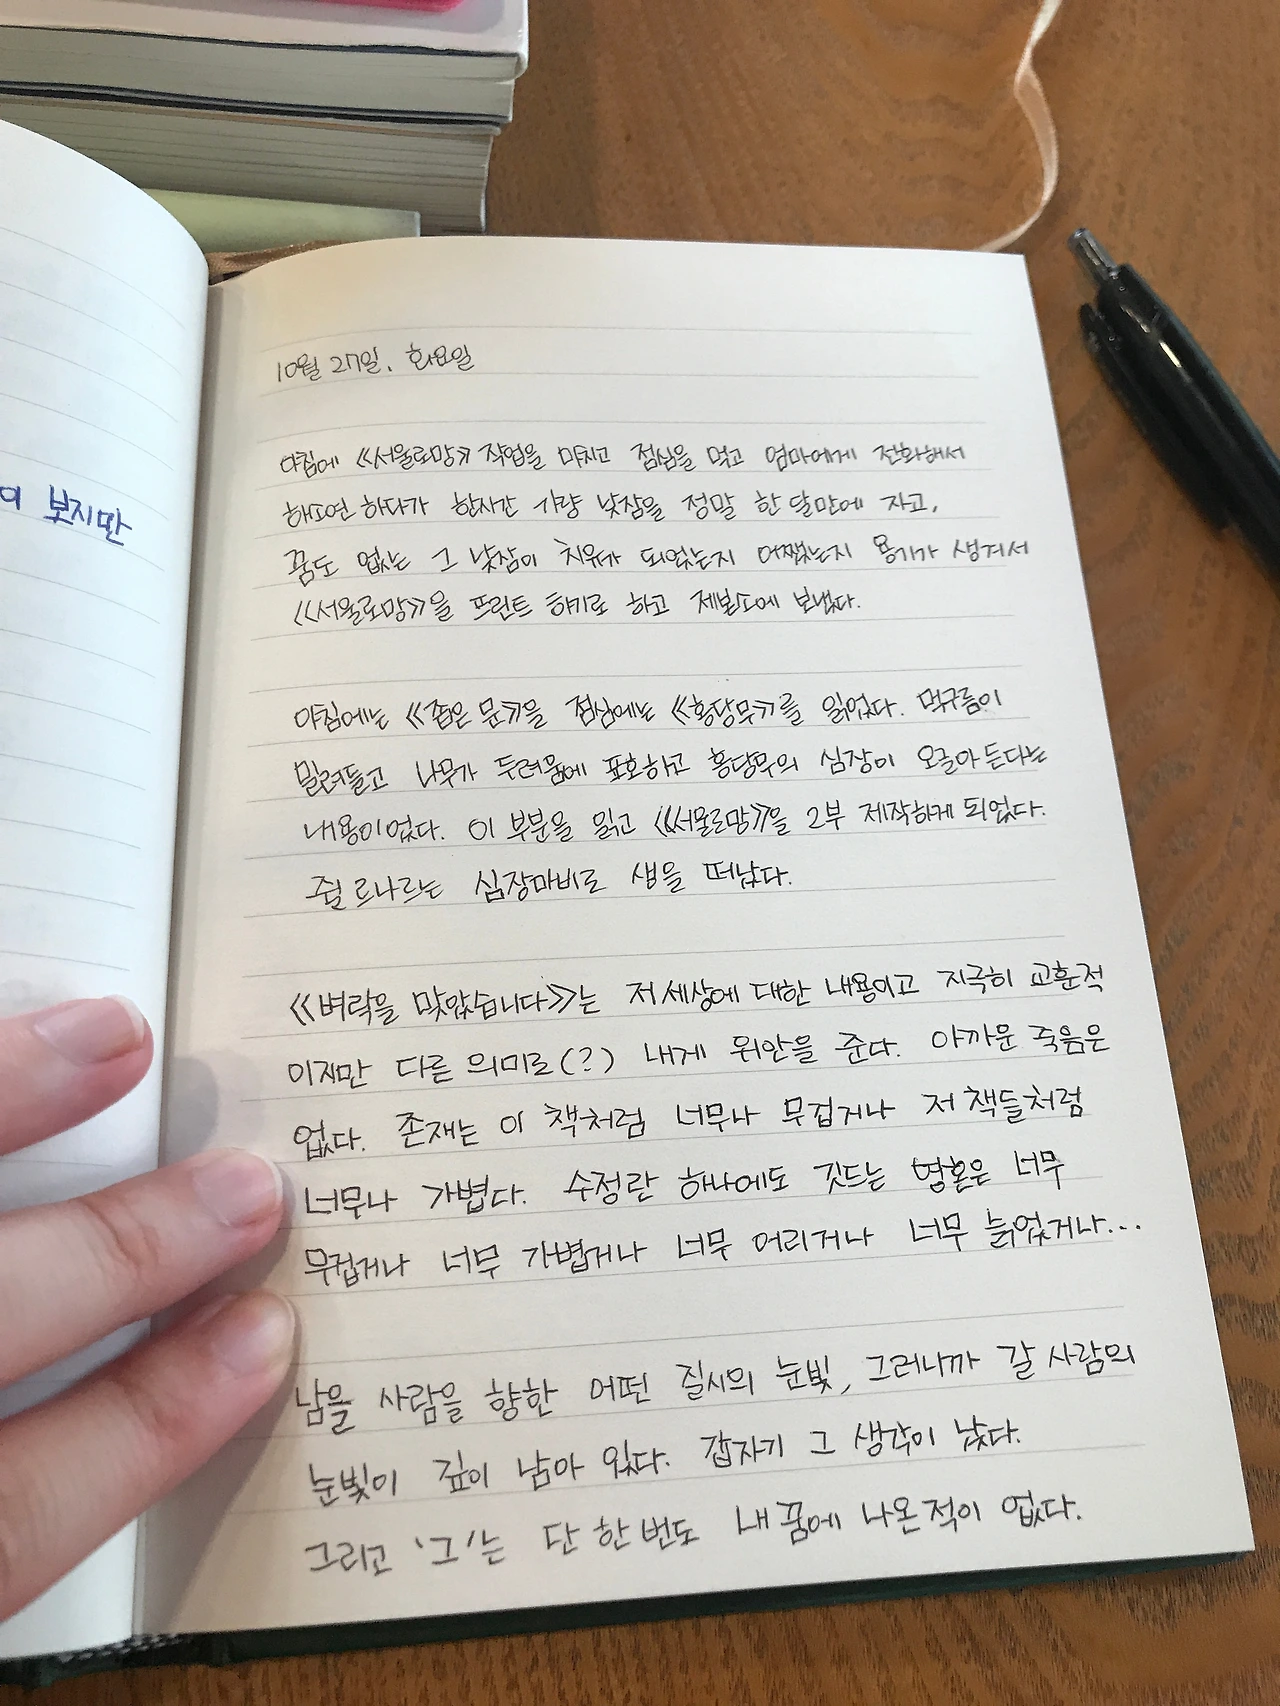 이 보지만
10월 27일. 화요일
아침에 《서울로망》 작업을 마치고 점심을 먹고 엄마에게 전화해서
하소연 하다가 한시간 가량 낮잠을 정말 한 달만에 자고,
꿈도 없는 그 낮잠이 치유가 되었는지 어쨌는지 용기가 생겨서
《서울로망》을 프린트 하기로 하고 제본소에 보냈다.
아침에는 《좁은 문》을 점심에는 《홍당무》를 읽었다. 먹구름이
밀려들고 나무가 두려움에 포효하고 홍당무의 심장이 오글아 든다는
내용이었다. 이 부분을 읽고 《서울로망》을 2부 제작하게 되었다.
쥘 르나르는 심장마비로 생을 떠났다.
《벼락을 맞았습니다》는 저 세상에 대한 내용이고 지극히 교훈적
이지만 다른 의미로(?) 내게 위안을 준다. 아까운 죽음은
없다. 존재는 이 책처럼 너무나 무겁거나 저 책들처럼
너무나 가볍다. 수정란 하나에도 깃드는 영혼은 너무
무겁거나 너무 가볍거나 너무 어리거나 너무 늙었거나...
남을 사람을 향한 어떤 질시의 눈빛, 그러니까 갈 사람의
눈빛이 깊이 남아 있다. 갑자기 그 생각이 났다.
그리고 '그'는 단 한 번도 내 꿈에 나온 적이 없다.